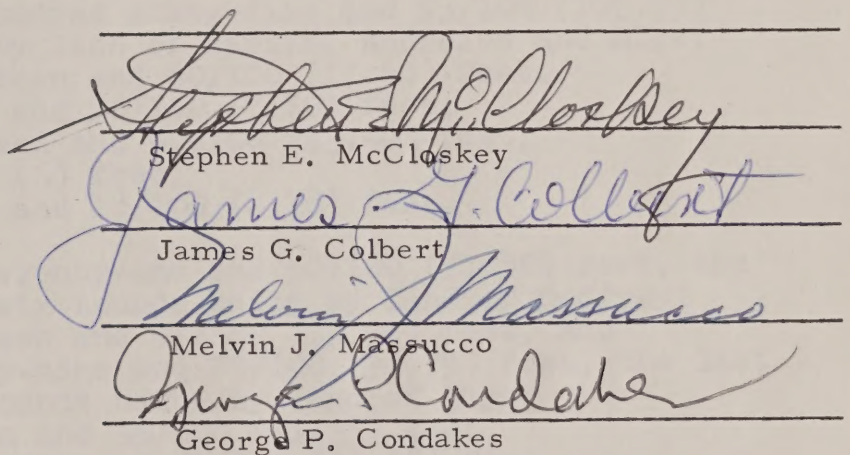 Stephen E. McCloskey
Stephen E. McCloskey
James G. Colbert
James G. Colbert
Melvin J. Massucco
Melvin J. Massucco
George P. Condakes
George P. Condakes